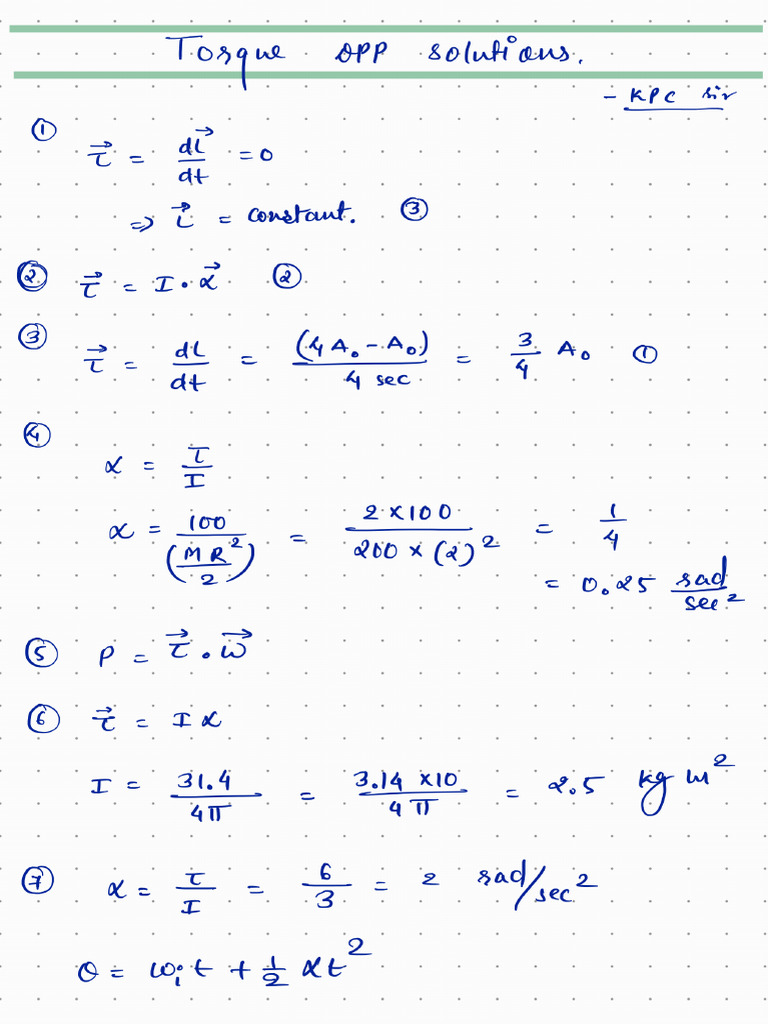 Torque DPP solutions.
- KPC sir
① τ⃗ = dL⃗/dt = 0
=> L⃗ = constant. ③
② τ⃗ = I · α⃗ ②
③ τ⃗ = dL/dt = (4A₀ - A₀)/4 sec = 3/4 A₀ ①
④
α = τ/I
α = 100/(MR²/2) = 2 × 100/200 × (2)² = 1/4
= 0.25 rad/sec²
⑤ P = τ⃗ . ω⃗
⑥ τ⃗ = I α
I = 31.4/4π = 3.14 × 10/4π = 2.5 kg m²
⑦ α = τ/I = 6/3 = 2 rad/sec²
θ = ωᵢt + 1/2 αt²